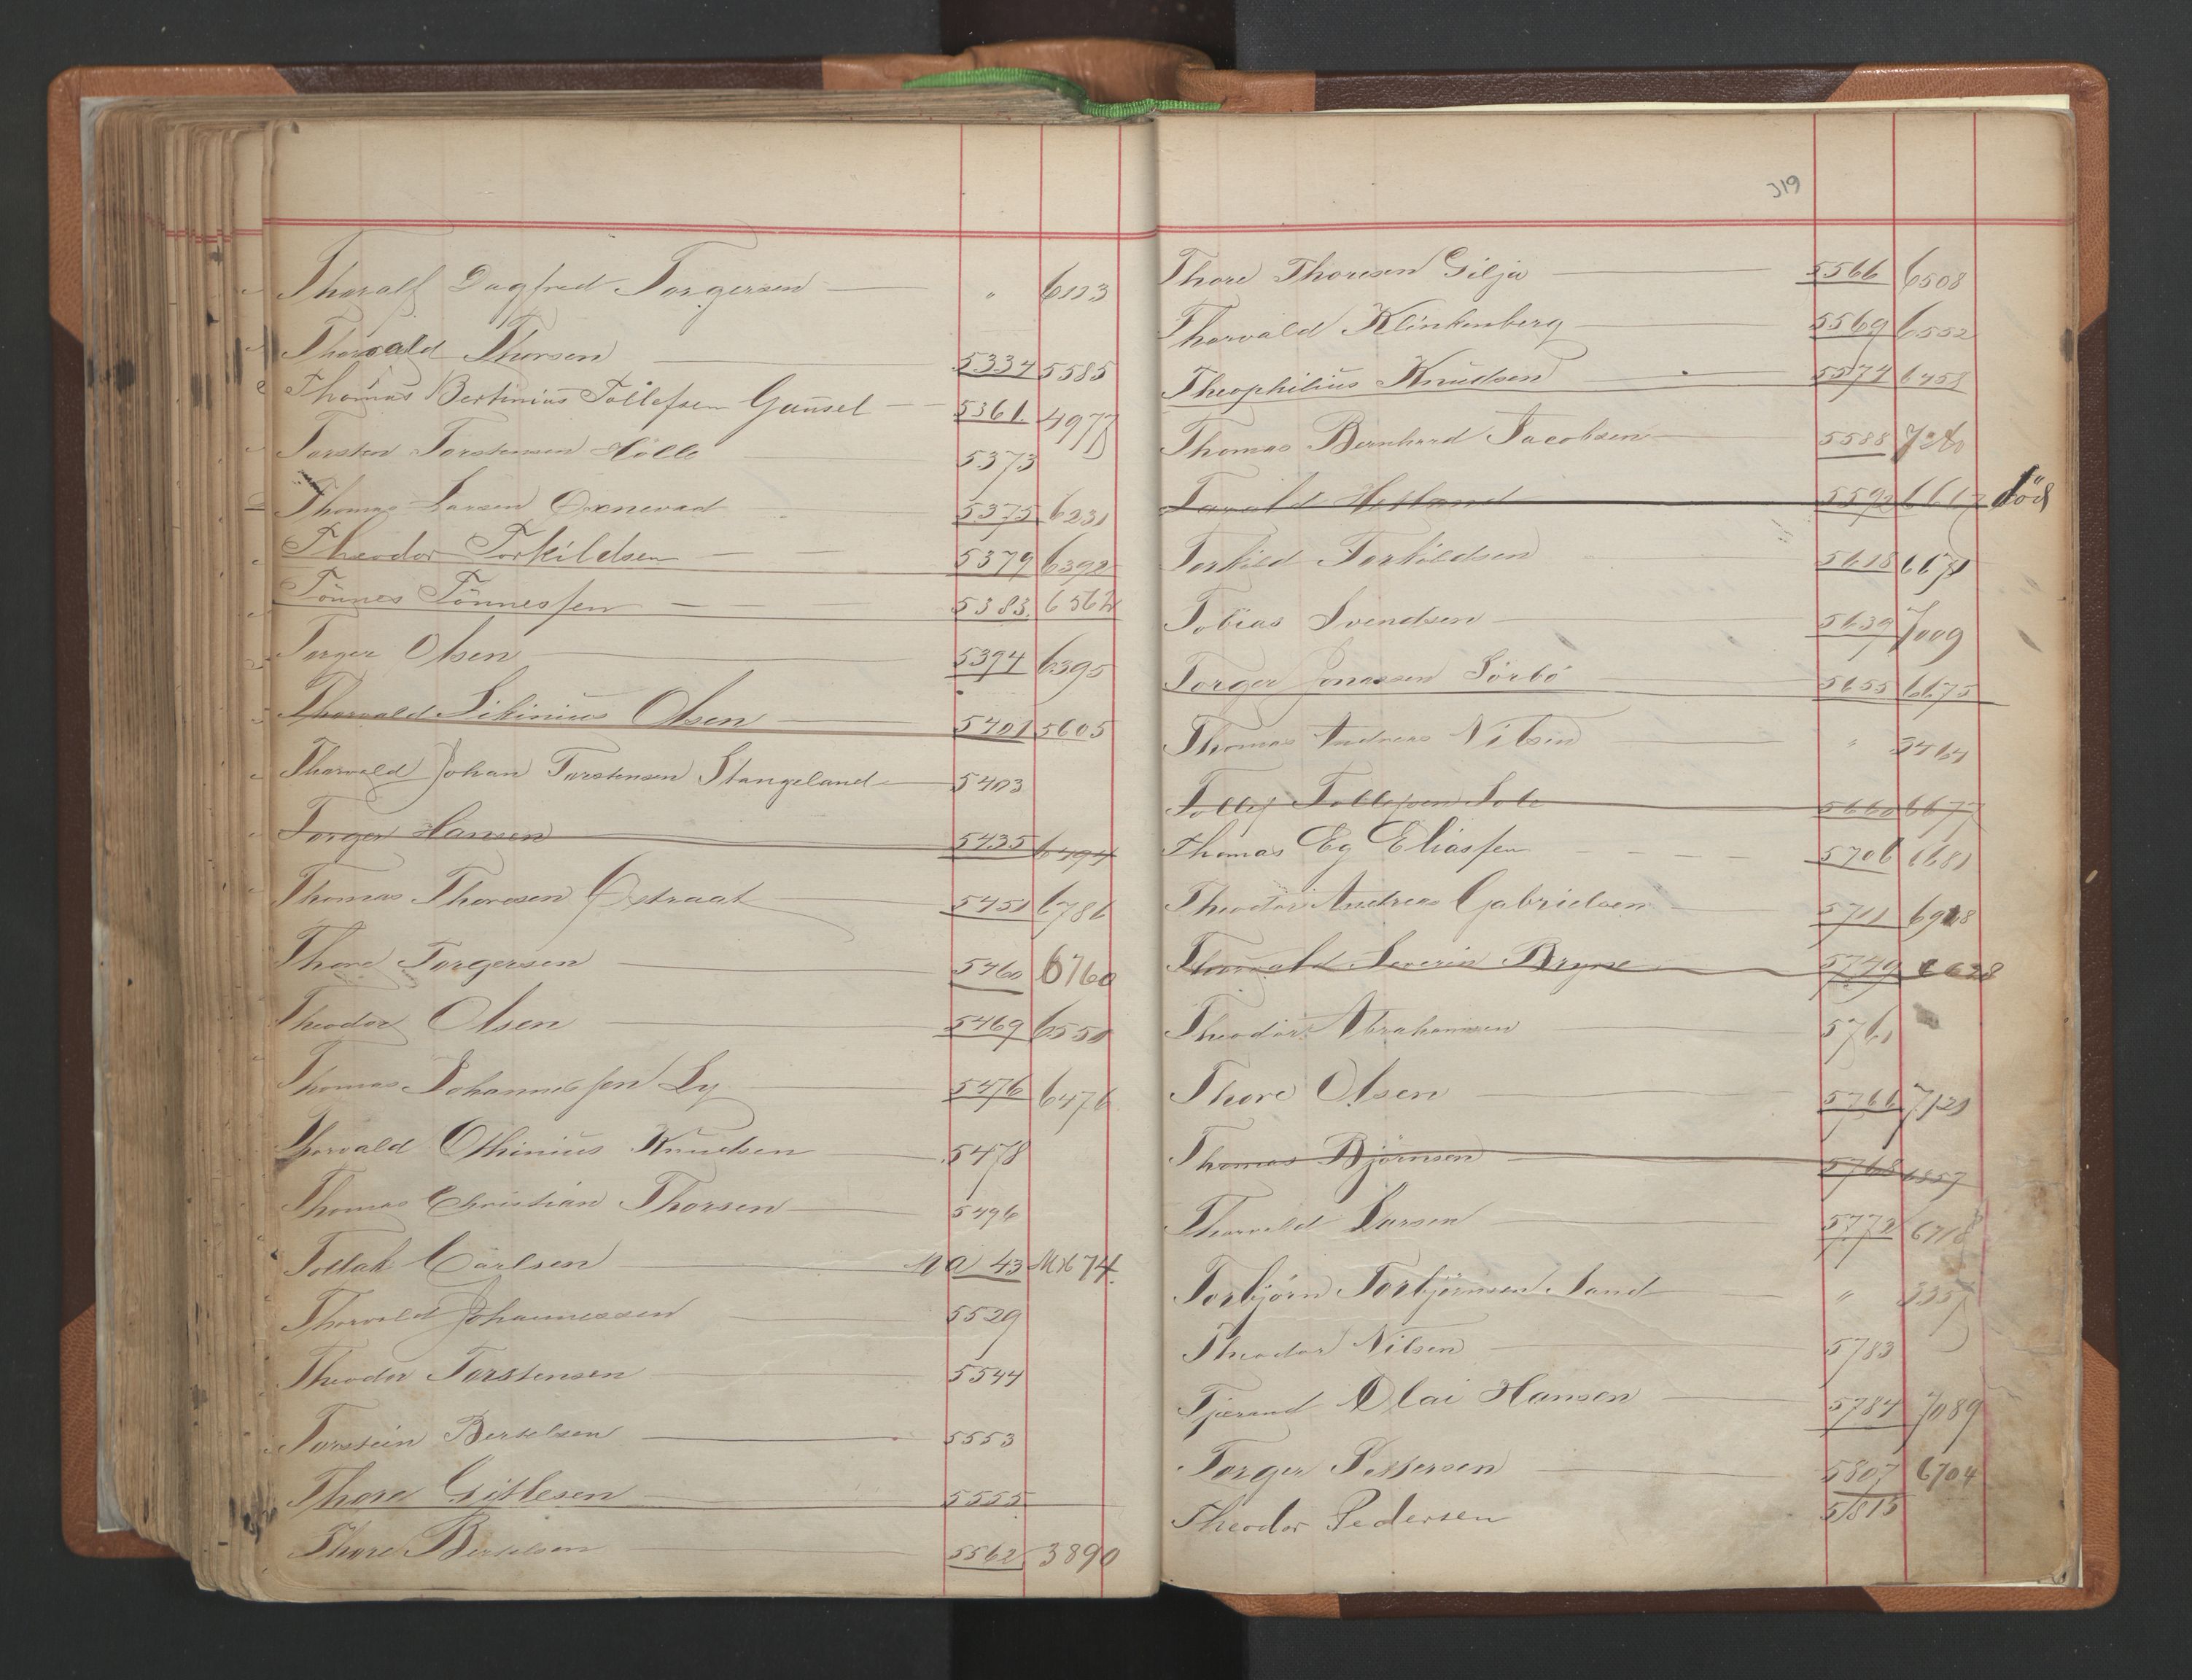 Thoralf Dagfred Torgersen — " 6123
Thorvald Thorsen — 5334 5585
Thomas Bertinius Tollefsen Gausel — 5361 4977
Torsten Torstensen Hölle — 5373
Thomas Larsen Oxnevad 5375 6231
Theodor Torkildsen — 5379 6392
Tönnes Tönnessen — — 5383 6562
Torger Olsen — 5394 6395
Thorvald Sikinius Olsen — 5401 5605
Thorvald Johan Torstensen Stangeland — 5403
Torger Hansen — 5435 6494
Thomas Thoresen Østraat — 5451 6786
Thore Torgersen — 5460 6760
Theodor Olsen — 5469 6550
Thomas Johannessen Ly — 5476 6476
Thorvald Othinius Knudsen — 5478
Thomas Christian Thorsen — 5496
Tollak Carlsen — 43 674
Thorvald Johannessen — 5529
Theodor Torstensen — 5544
Torstein Bertelsen — 5553
Thore Gitlesen — 5555
Thore Bertelsen — 5562 3890
319
Thore Thoresen Gilja — 5566 6508
Thorvald Klinkenberg — 5569 6552
Theophilius Knudsen — 5574 6458
Thomas Bernhard Jacobsen — 5588
Tarald Hetland — 5592 6617 död
Torkild Torkildsen 5618 6671
Tobias Svendsen — 5639 7009
Torger Jonassen Sörbö 5655 6675
Thomas Andreas Nilsen — "
Tollef Tollefsen Sole — 5660 6677
Thomas Eg Eliassen — — — 5706 6681
Theodor Andreas Gabrielsen — 5711 6918
Thorvald Severin Bryne — 5749 6628
Theodor Abrahamsen — 5761
Thore Olsen — 5766 7121
Thomas Björnsen — 5768 6857
Thorvald Larsen — 5772 6718
Torbjörn Torbjörnsen Sand — "
Theodor Nilsen — 5783
Tjerand Olai Hansen — 5784 7089
Torger Pettersen — 5807 6704
Theodor Pedersen 5815